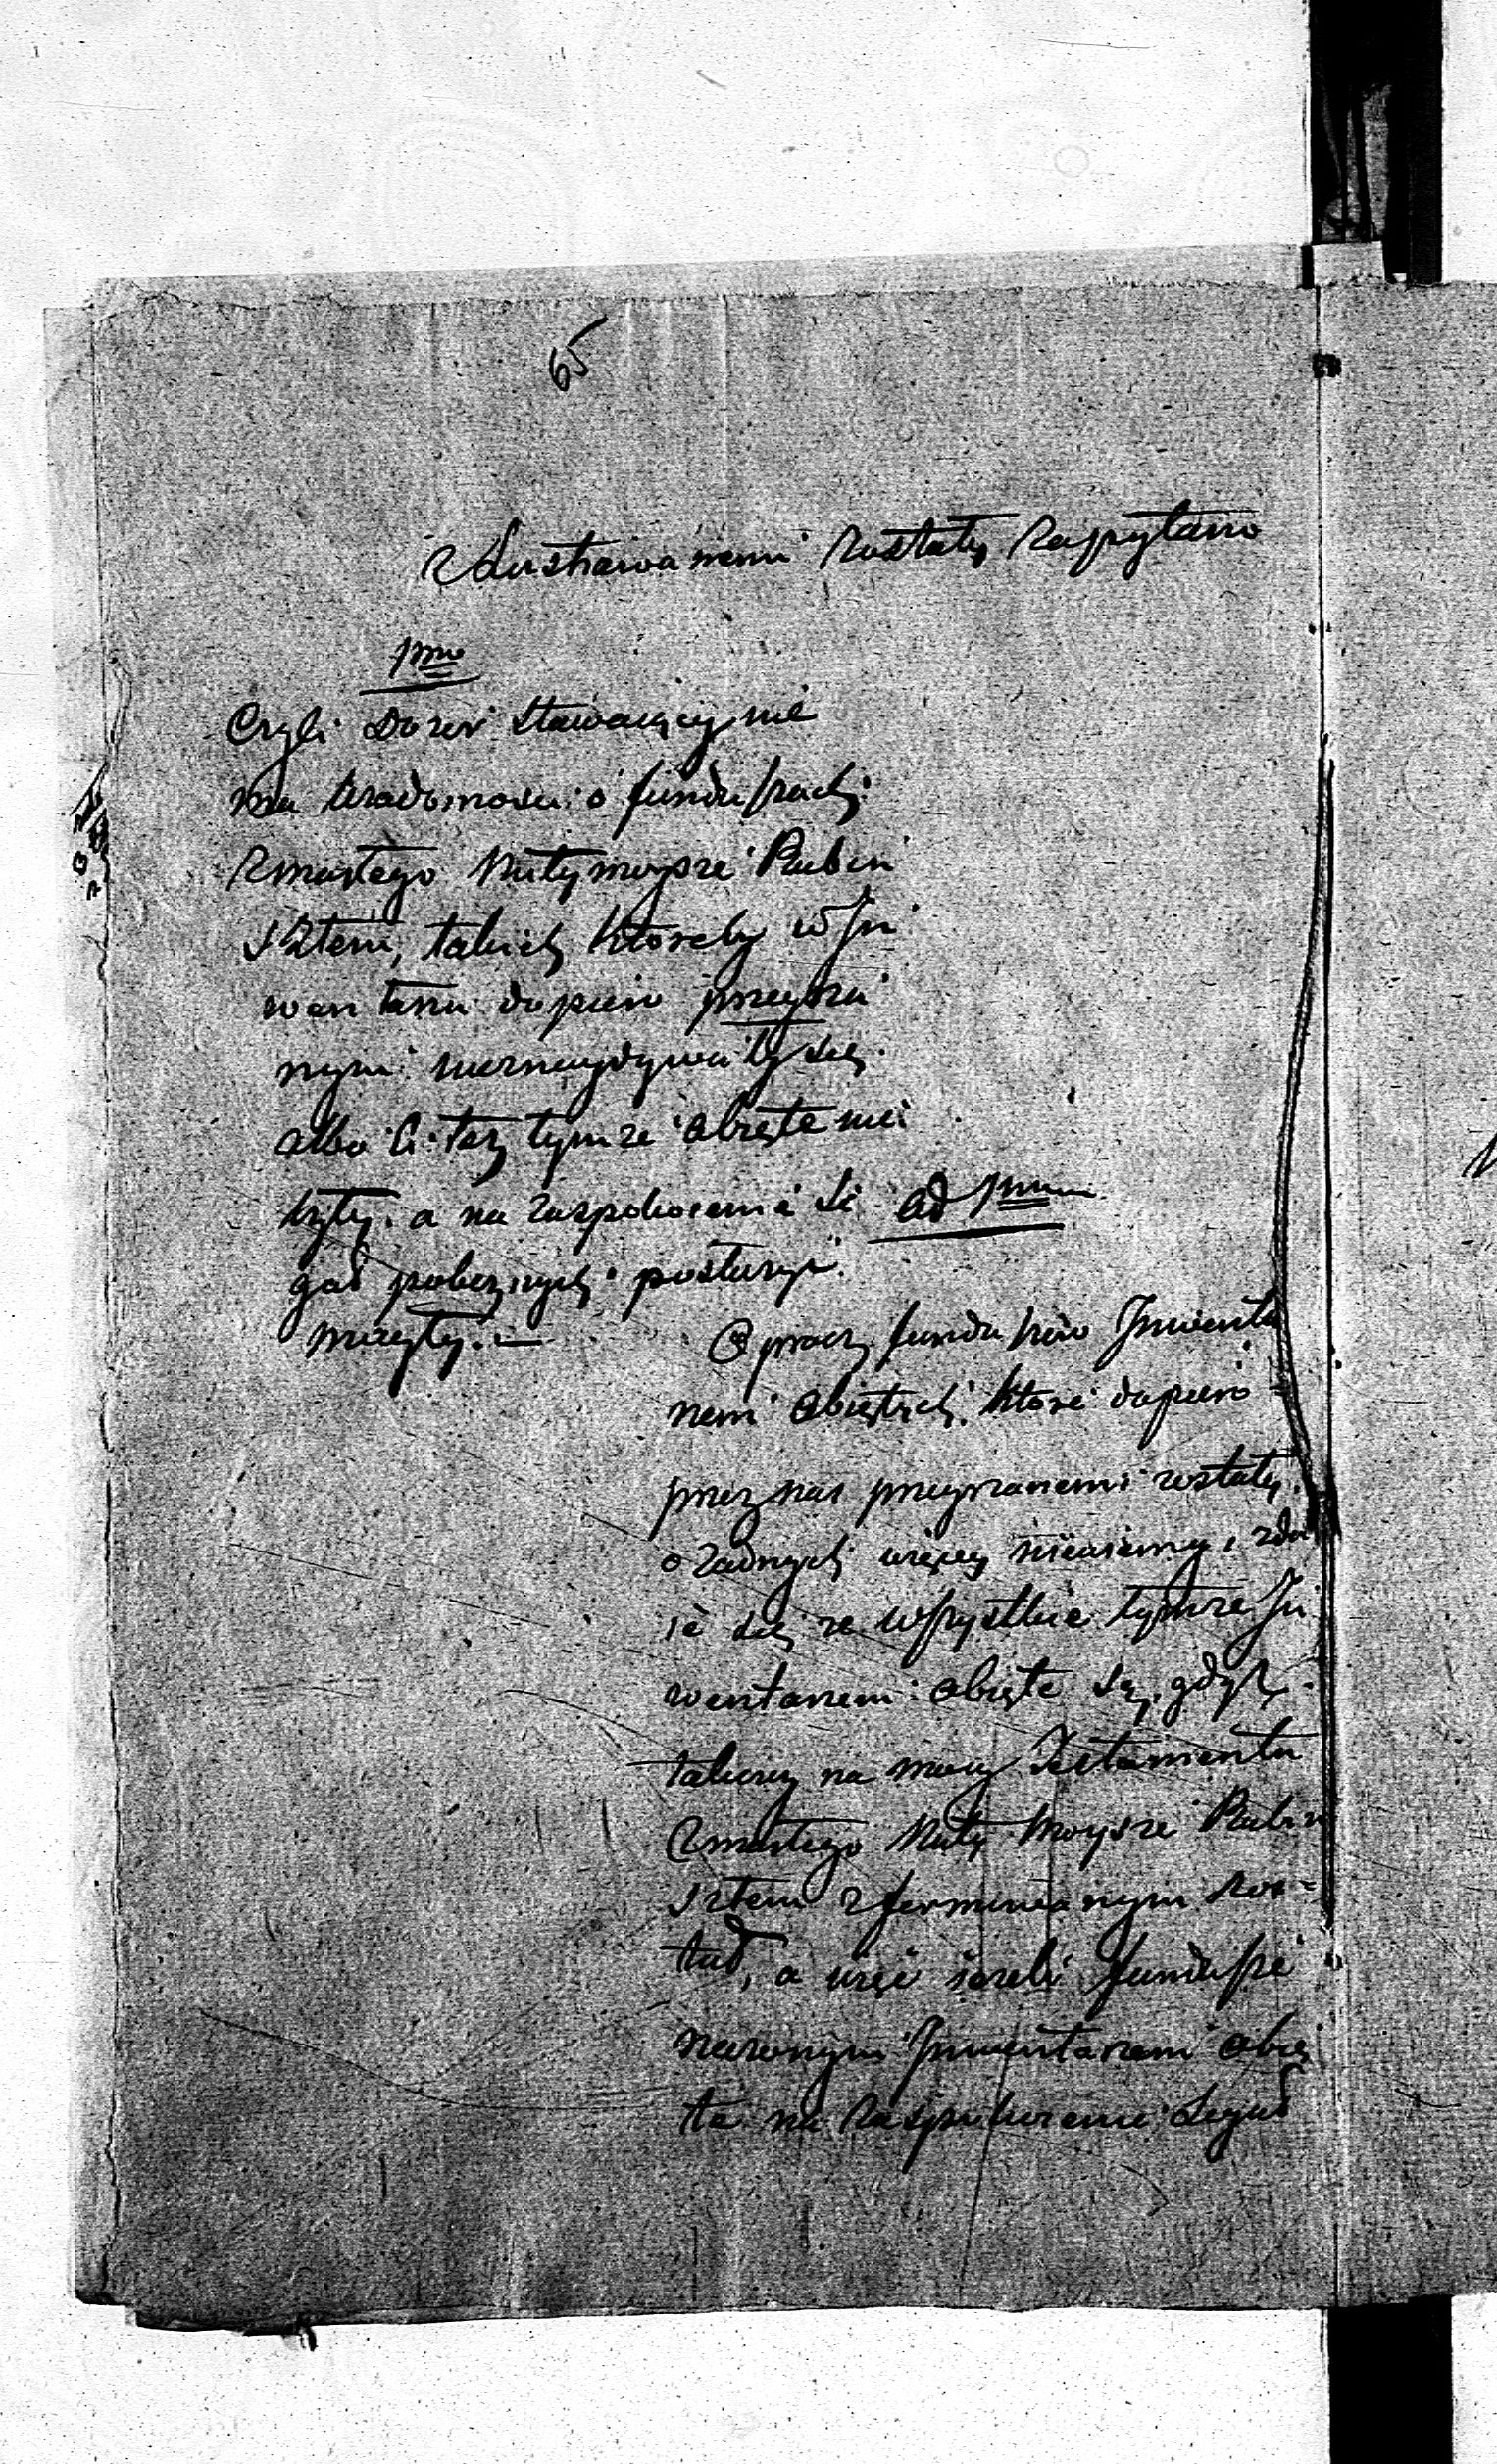 65
zlustrowanemi zostały zapytano
1mo
Czyli Dozór stawaiący nie
ma wiadomości o funduszach
Zmarłego Nuty Moysze Rubin
sztein, takich któreby w In
wentarzu dopiero przeyrza
nym nieznaydywały się
albo li też tymże obięte nie
były, a na zaspokoienie Le
gat pobożnych posłużyć
mogły. —
ad 1mum
Oprócz funduszów Inwenta
rzem obiętych, które dopiero
przez nas przeyrzanemi zostały,
o żadnych więcey niewiemy, zda
ie się że wszystkie tymże In
wentarzem obięte są, gdyż
takowy na mocy Testamentu
Zmarłego Nuty Moysze Rubin
sztein sformowanym zos=
tał, a więc ieżeli fundusze
rzeczonym Inwentarzem obię
te na zaspokoienie Legat